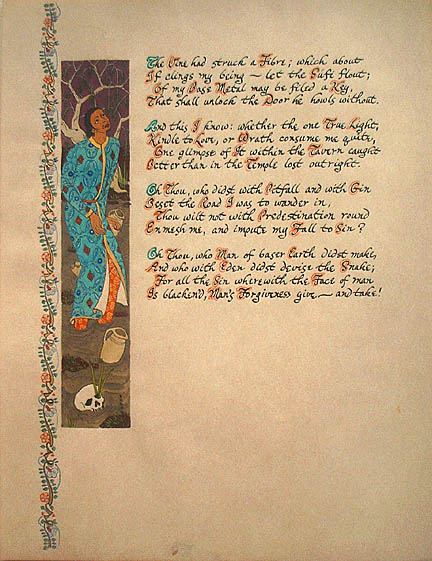 The Vine had struck a Fibre; which about
If clings my being — let the Sufi flout;
Of my Base Metal may be filed a Key,
That shall unlock the Door he howls without.
And this I know: whether the one True Light,
Kindle to Love, or Wrath consume me quite,
One glimpse of It within the Tavern caught
Better than in the Temple lost outright.
Oh Thou, who didst with Pitfall and with Gin
Beset the Road I was to wander in,
Thou wilt not with Predestination round
Enmesh me, and impute my Fall to Sin?
Oh Thou, who Man of baser Earth didst make,
And who with Eden didst devise the Snake;
For all the Sin wherewith the Face of man
Is blacken'd, Man's Forgiveness give — and take!